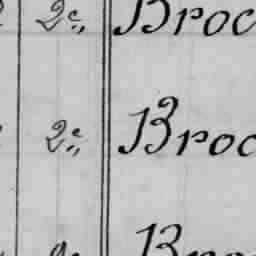 2e Broc
2e Broc